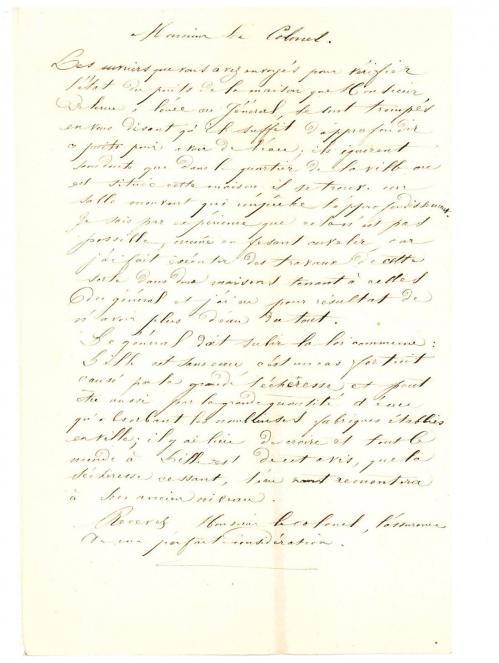 Monsieur Le Colonel.
Les ouvriers que vous avez envoyés pour vérifier
l'état du puits de la maison que Monsieur
a louée au Général, se sont trompés
en vous disant qu'il suffit d'approfondir
ce puits pour avoir de l'eau; ils ignorent
sans doute que dans le quartier de la ville où
est située cette maison il se trouve un
sable mouvant qui empêche l'approfondissement.
Je sais par expérience que cela n'est pas
possible, même en fesant cuveler, car
j'ai fait exécuter des travaux de cette
sorte dans deux maisons tenant à celles
du général et j'ai eu pour résultat de
n'avoir plus d'eau du tout.
Le général doit subir la loi commune:
Lille est sans eau c'est un cas fortuit
causé par la grande sécheresse et peut
être aussi par la grande quantité d'eau
qu'absorbent les nombreuses fabriques établies
en ville; il y a lieu de croire et tout le
monde à Lille est de cet avis, que la
sécheresse cessant, l'eau remontera
à son ancien niveau.
Recevez Monsieur le colonel, l'assurance
de ma parfaite considération.